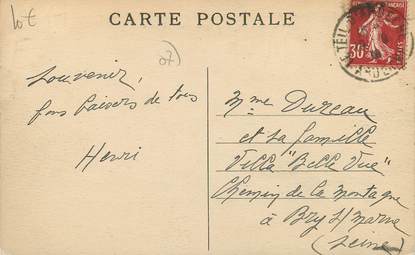 lot
CARTE POSTALE
07
30
LE TEIL
ARDECHE
Souvenir,
bons baisers de tous
Henri
Mme Dureau
et sa famille
Villa "Belle Vue"
Chemin de la montagne
à Bry s/ Marne
(Seine)